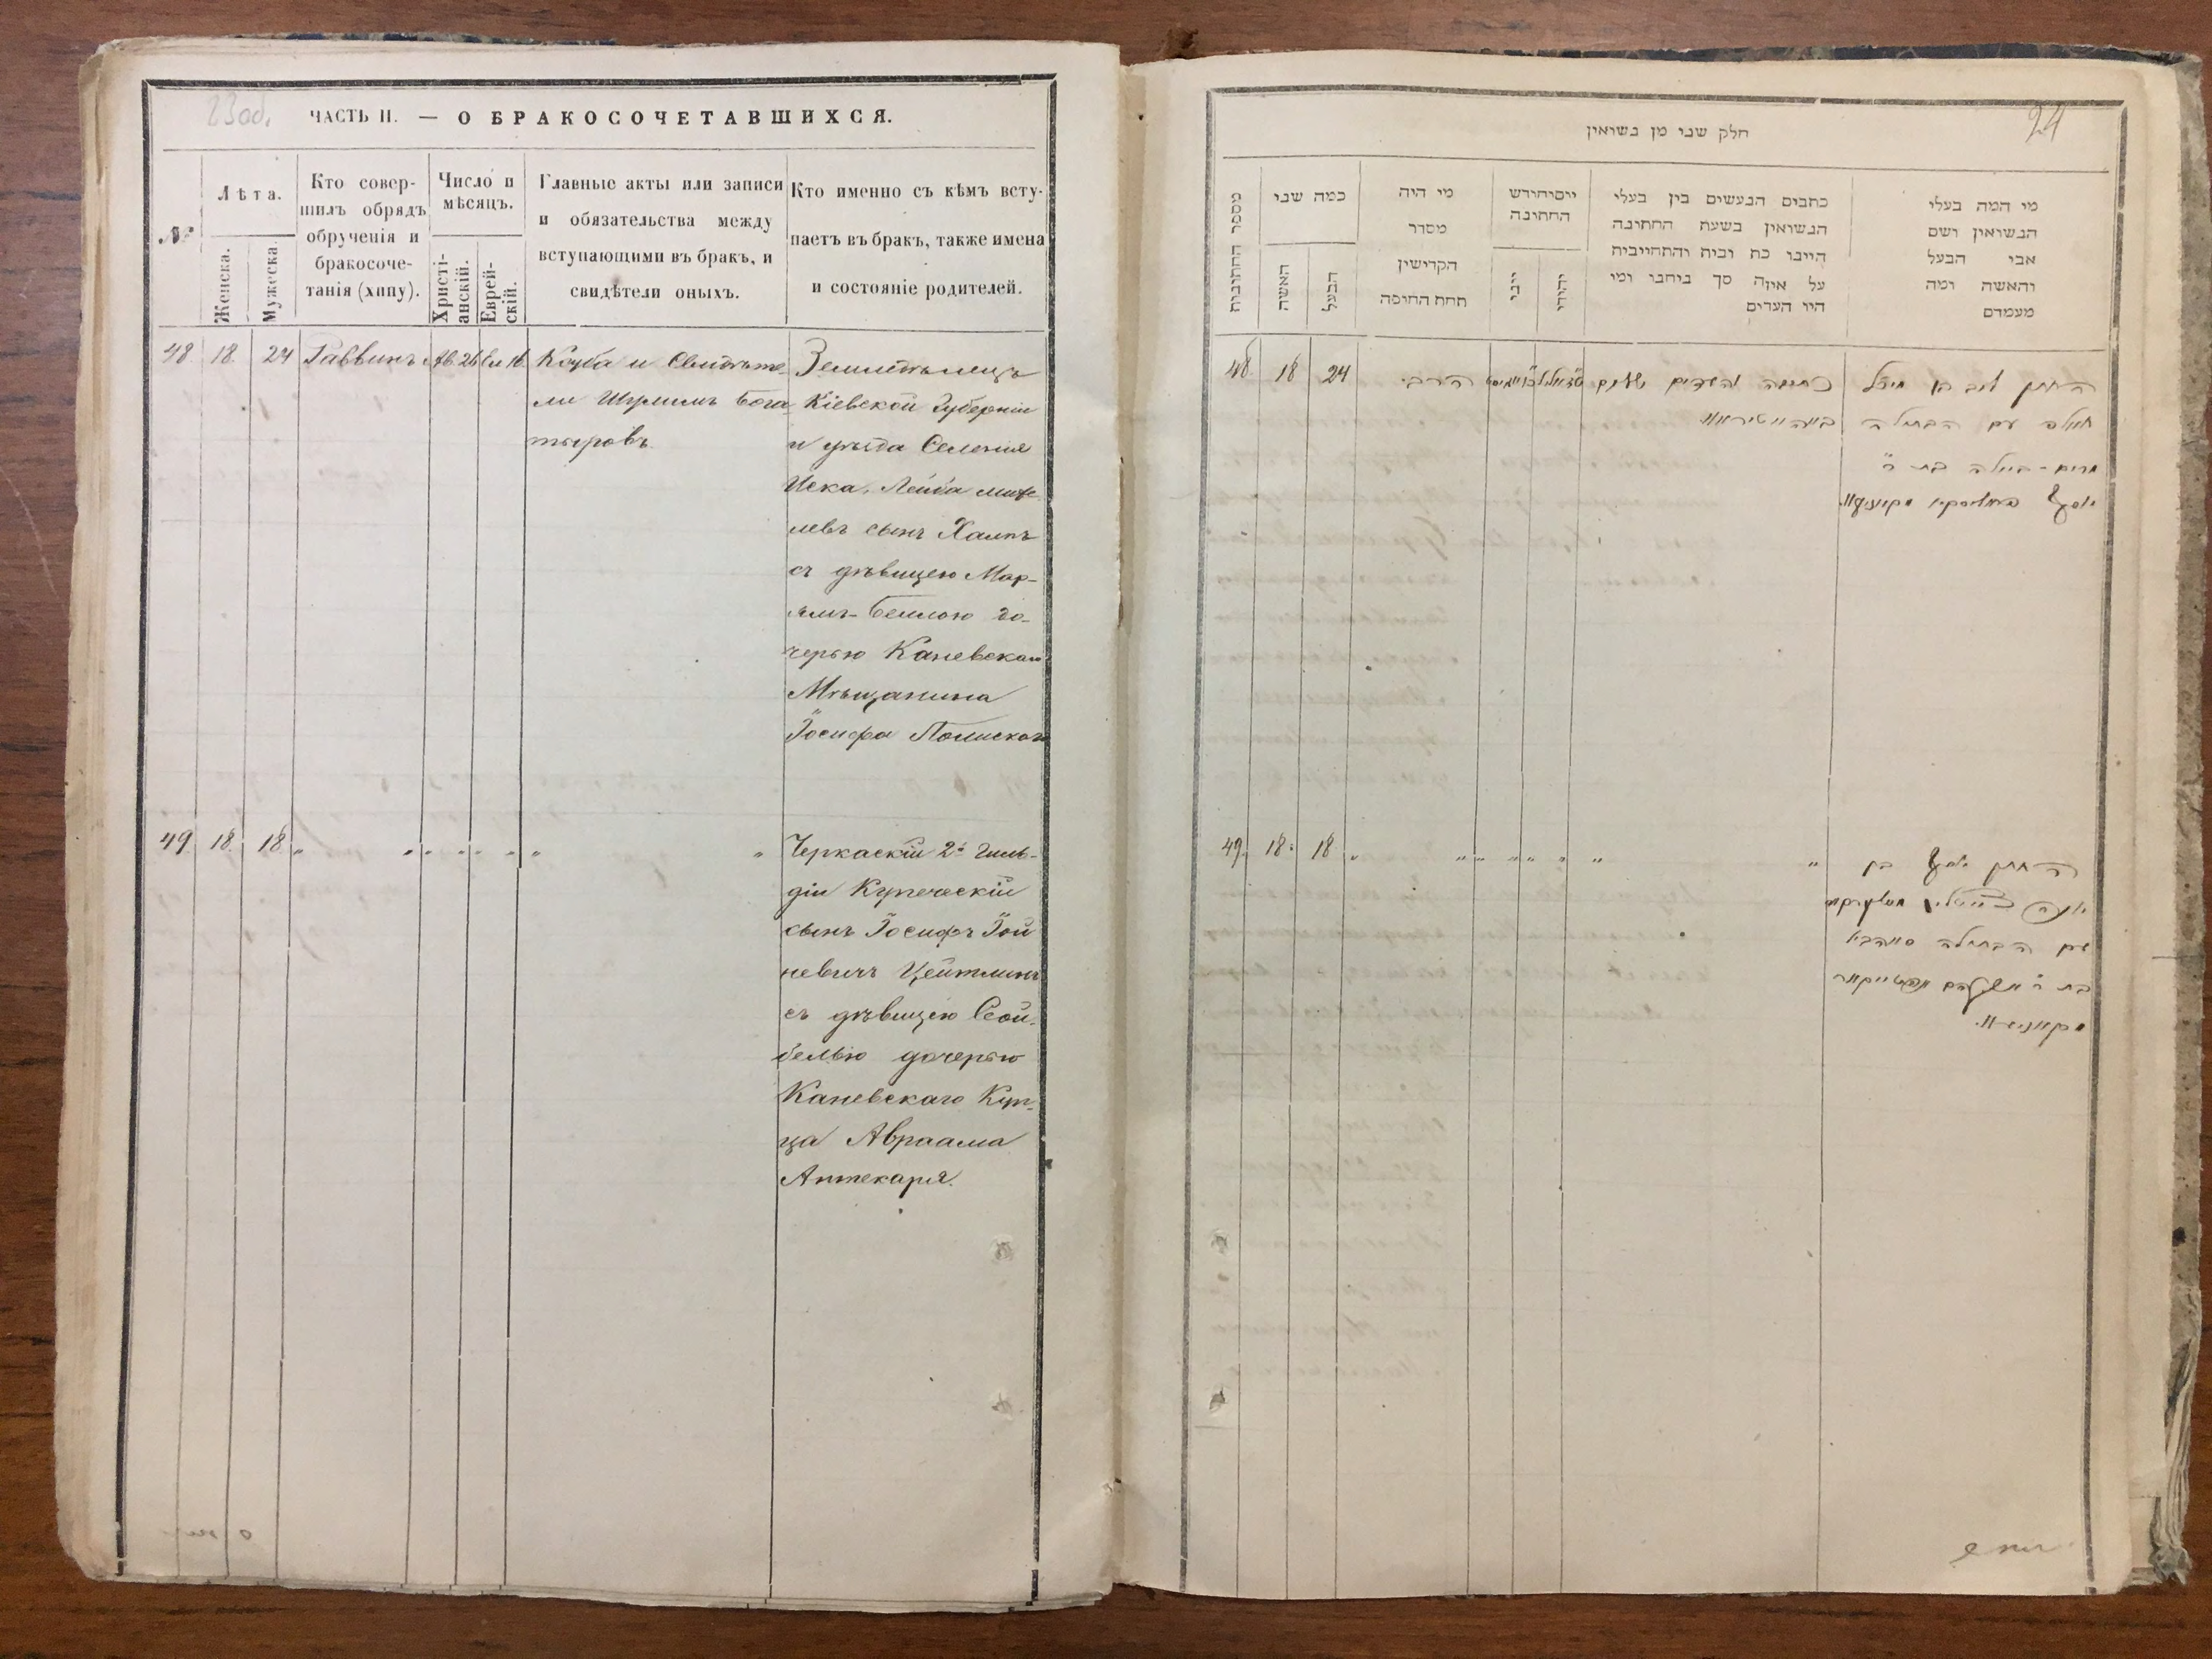 23об.
ЧАСТЬ II. — О БРАКОСОЧЕТАВШИХСЯ.
№
Лѣта.
Женска.
Мужеска.
Кто совер-
шилъ обрядъ
обрученія и
бракосоче-
танія (хипу).
Число и
мѣсяцъ.
Христі-
анскій.
Еврей-
скій.
Главные акты или записи
и обязательства между
вступающими въ бракъ, и
свидѣтели оныхъ.
Кто именно съ кѣмъ всту-
паетъ въ бракъ, также имена
и состояніе родителей.
48 18 24 Раввинъ Ав. 26 Ел 16
Кцуба и Свидѣте-
ли Шулимъ Бога
тыровъ
Земледѣлецъ
Кіевской Губерніи
и уѣзда Селенія
Лейба
левъ сынъ
съ дѣвицею Мар-
ямъ-Бейлою до-
черью Каневскаго
Мѣщанина
Іосифа
49 18 18 " " " " " " " "
Черкаскій 2й Гиль-
діи Купеческій
сынъ Іосифъ Іой
невичъ Цейтлинъ
съ дѣвицею Сой-
белью дочерью
Каневскаго Куп-
ца Авраама
Аптекаря.
24
חלק שני מן נשואין
מספר החתונות
כמה שני
האשה
הבעל
מי היה
מסדר
הקדישין
תחת החופה
יום וחודש
החתונה
יוני
יהודי
כתבים הנעשים בין בעלי
הנשואין בשעת החתונה
היינו כת ובית והתחייבית
על איזה סך ביחבו ומי
היו העדים
מי המה בעלי
הנשואין ושם
אבי הבעל
והאשה ומה
מעמדם
48 18 24 הרבי
כתובה והעדים שלום
החתן ליב בן
עם הבתולה
מרים-ביילה בת ר'
יוסף
49 18 18 " " " " " " " "
החתן יוסף בן
יונה צייטלין
עם הבתולה
בת ר' אברהם